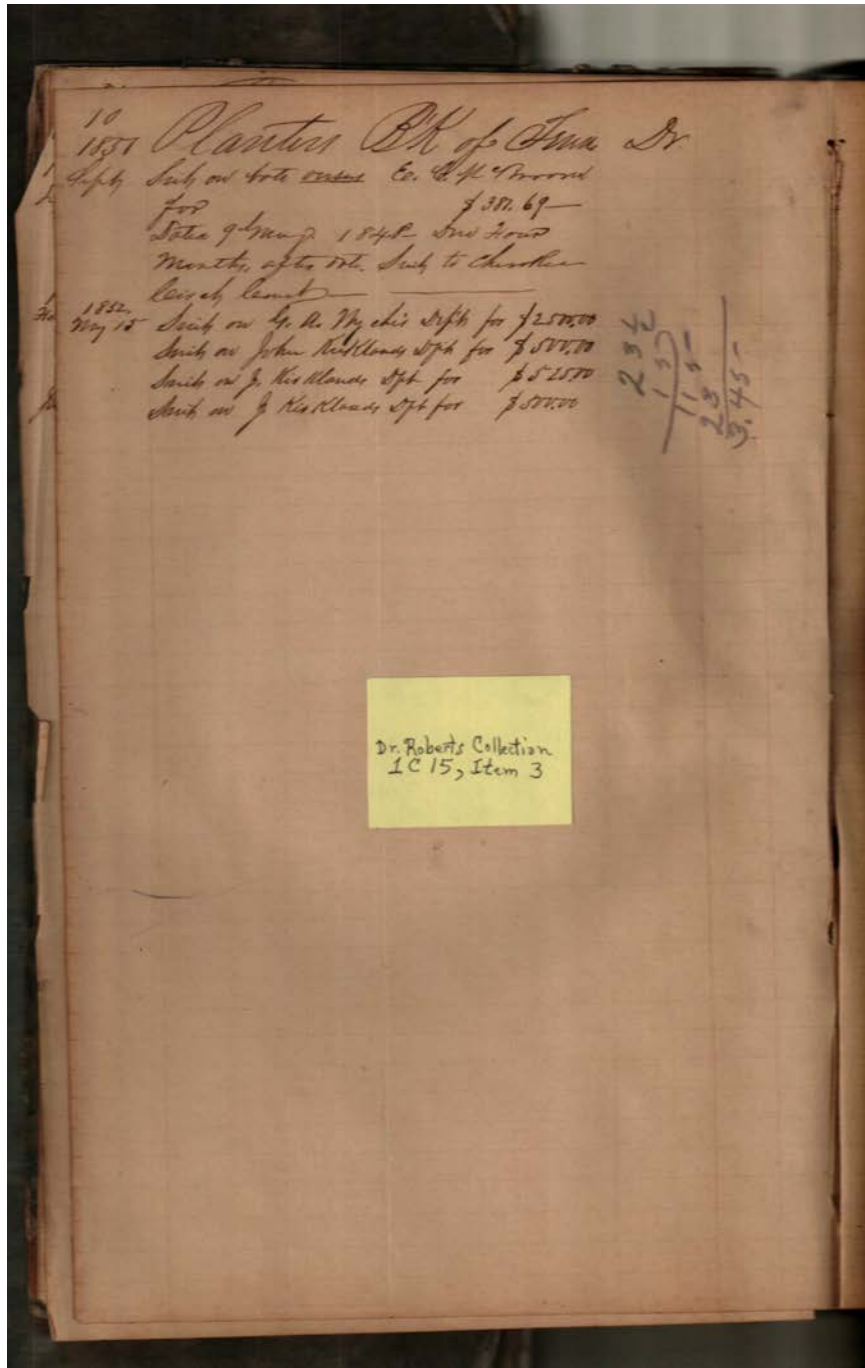 10
1851 Planters BK of Tenn Dr
Sept Suit on Note versus
for $381.69
Dated 9th May 1848 Due Four
Months after date. Suit to Cherokee
Court
1852
May 15 Suit on G. A. Dpft for $2500.00
Suit on John Kirklands Dft for $500.00
Suit on J. Kirklands Dft for $525.00
Suit on J Kirklands Dft for $500.00
115
23
3.45
Dr. Roberts Collection
1 C 15, Item 3